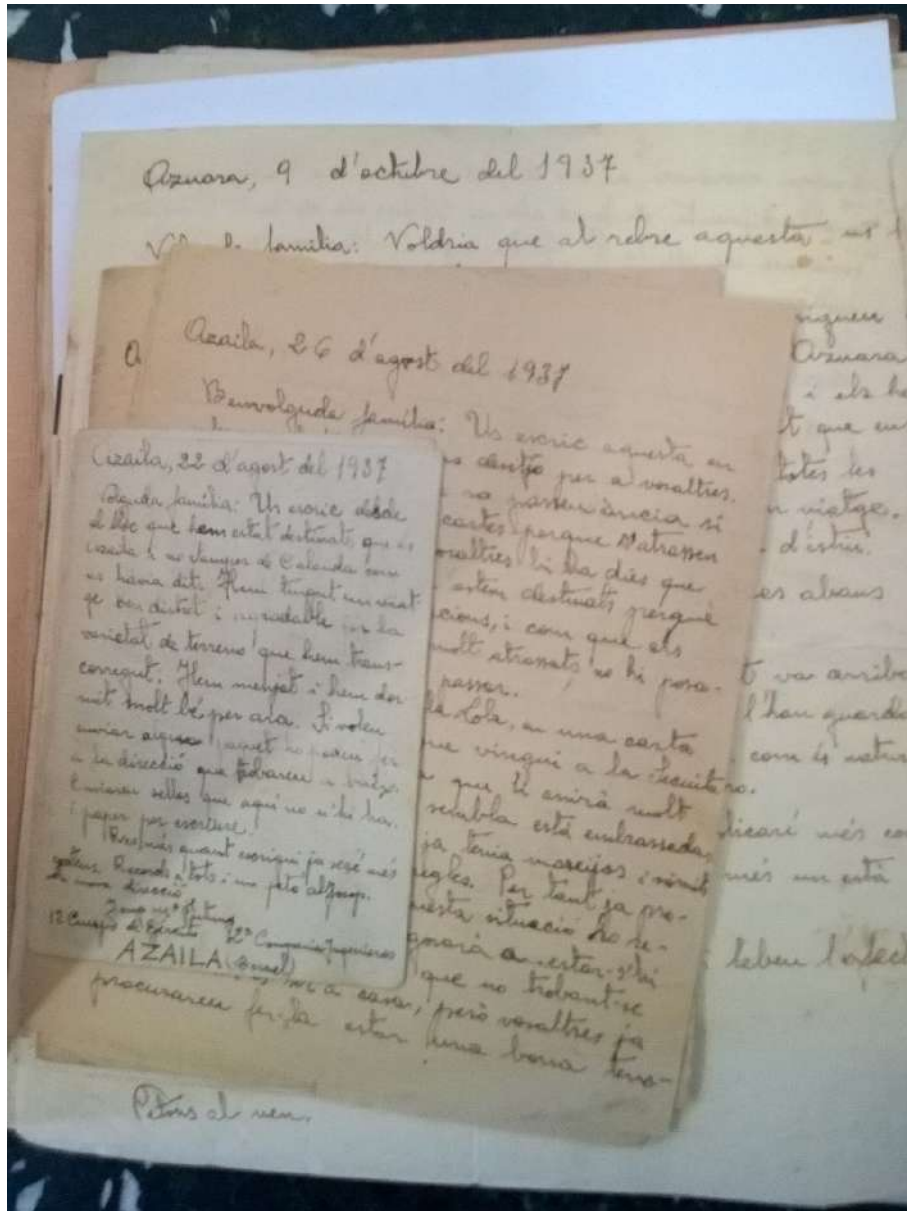 Azuara, 9 d'octubre del 1937
família: Voldria que al rebre aquesta us
siguem
Azuara
i els
t que en
totes les
viatge.
d'estiu.
es abans
t va arribar
l'han guarda
com és natur
dicaré més
més un està
i rebeu l'afect
Petons al nen.
Azaila, 26 d'agost del 1937
Benvolguda família: Us escric aquesta en
desitjo per a vosaltres.
no passeu ància si
cartes perque s'atrassen
vosaltres hi ha dies que
estem destinats perquè
cions, i com que els
molt atrassats no hi posa-
passar.
la Lola, en una carta
que vingui a la
que li anirà molt
sembla està embrassada
ja tenia mareijos i vòmits
regles. Per tant ja pro-
questa situació no re-
gnarà a estar-s'hi
que no trobant-se
a casa, però vosaltres ja
procurareu fer-la estar una bona tem-
Azaila, 22 d'agost del 1937
Volguda família: Us escric desde
el lloc que hem estat destinats que és
Azaila i no lluny de Calanda com
us havia dit. Hem tingut un viat-
ge ben distret i agradable per la
varietat de terreno que hem trans-
corregut. Hem menjat i hem dor-
mit molt bé per ara. Si voleu
enviar algun paquet ho podeu fer
a la direcció que trobareu a baix.
Envieu sellos que aquí no n'hi ha,
i paper per escriure.
Després quant escrigui ja seré més
extens. Records a tots i un peto al
La meva direcció
12 Cuerpo de Ejército 2ª Compañia Ingenieros
AZAILA (Teruel)